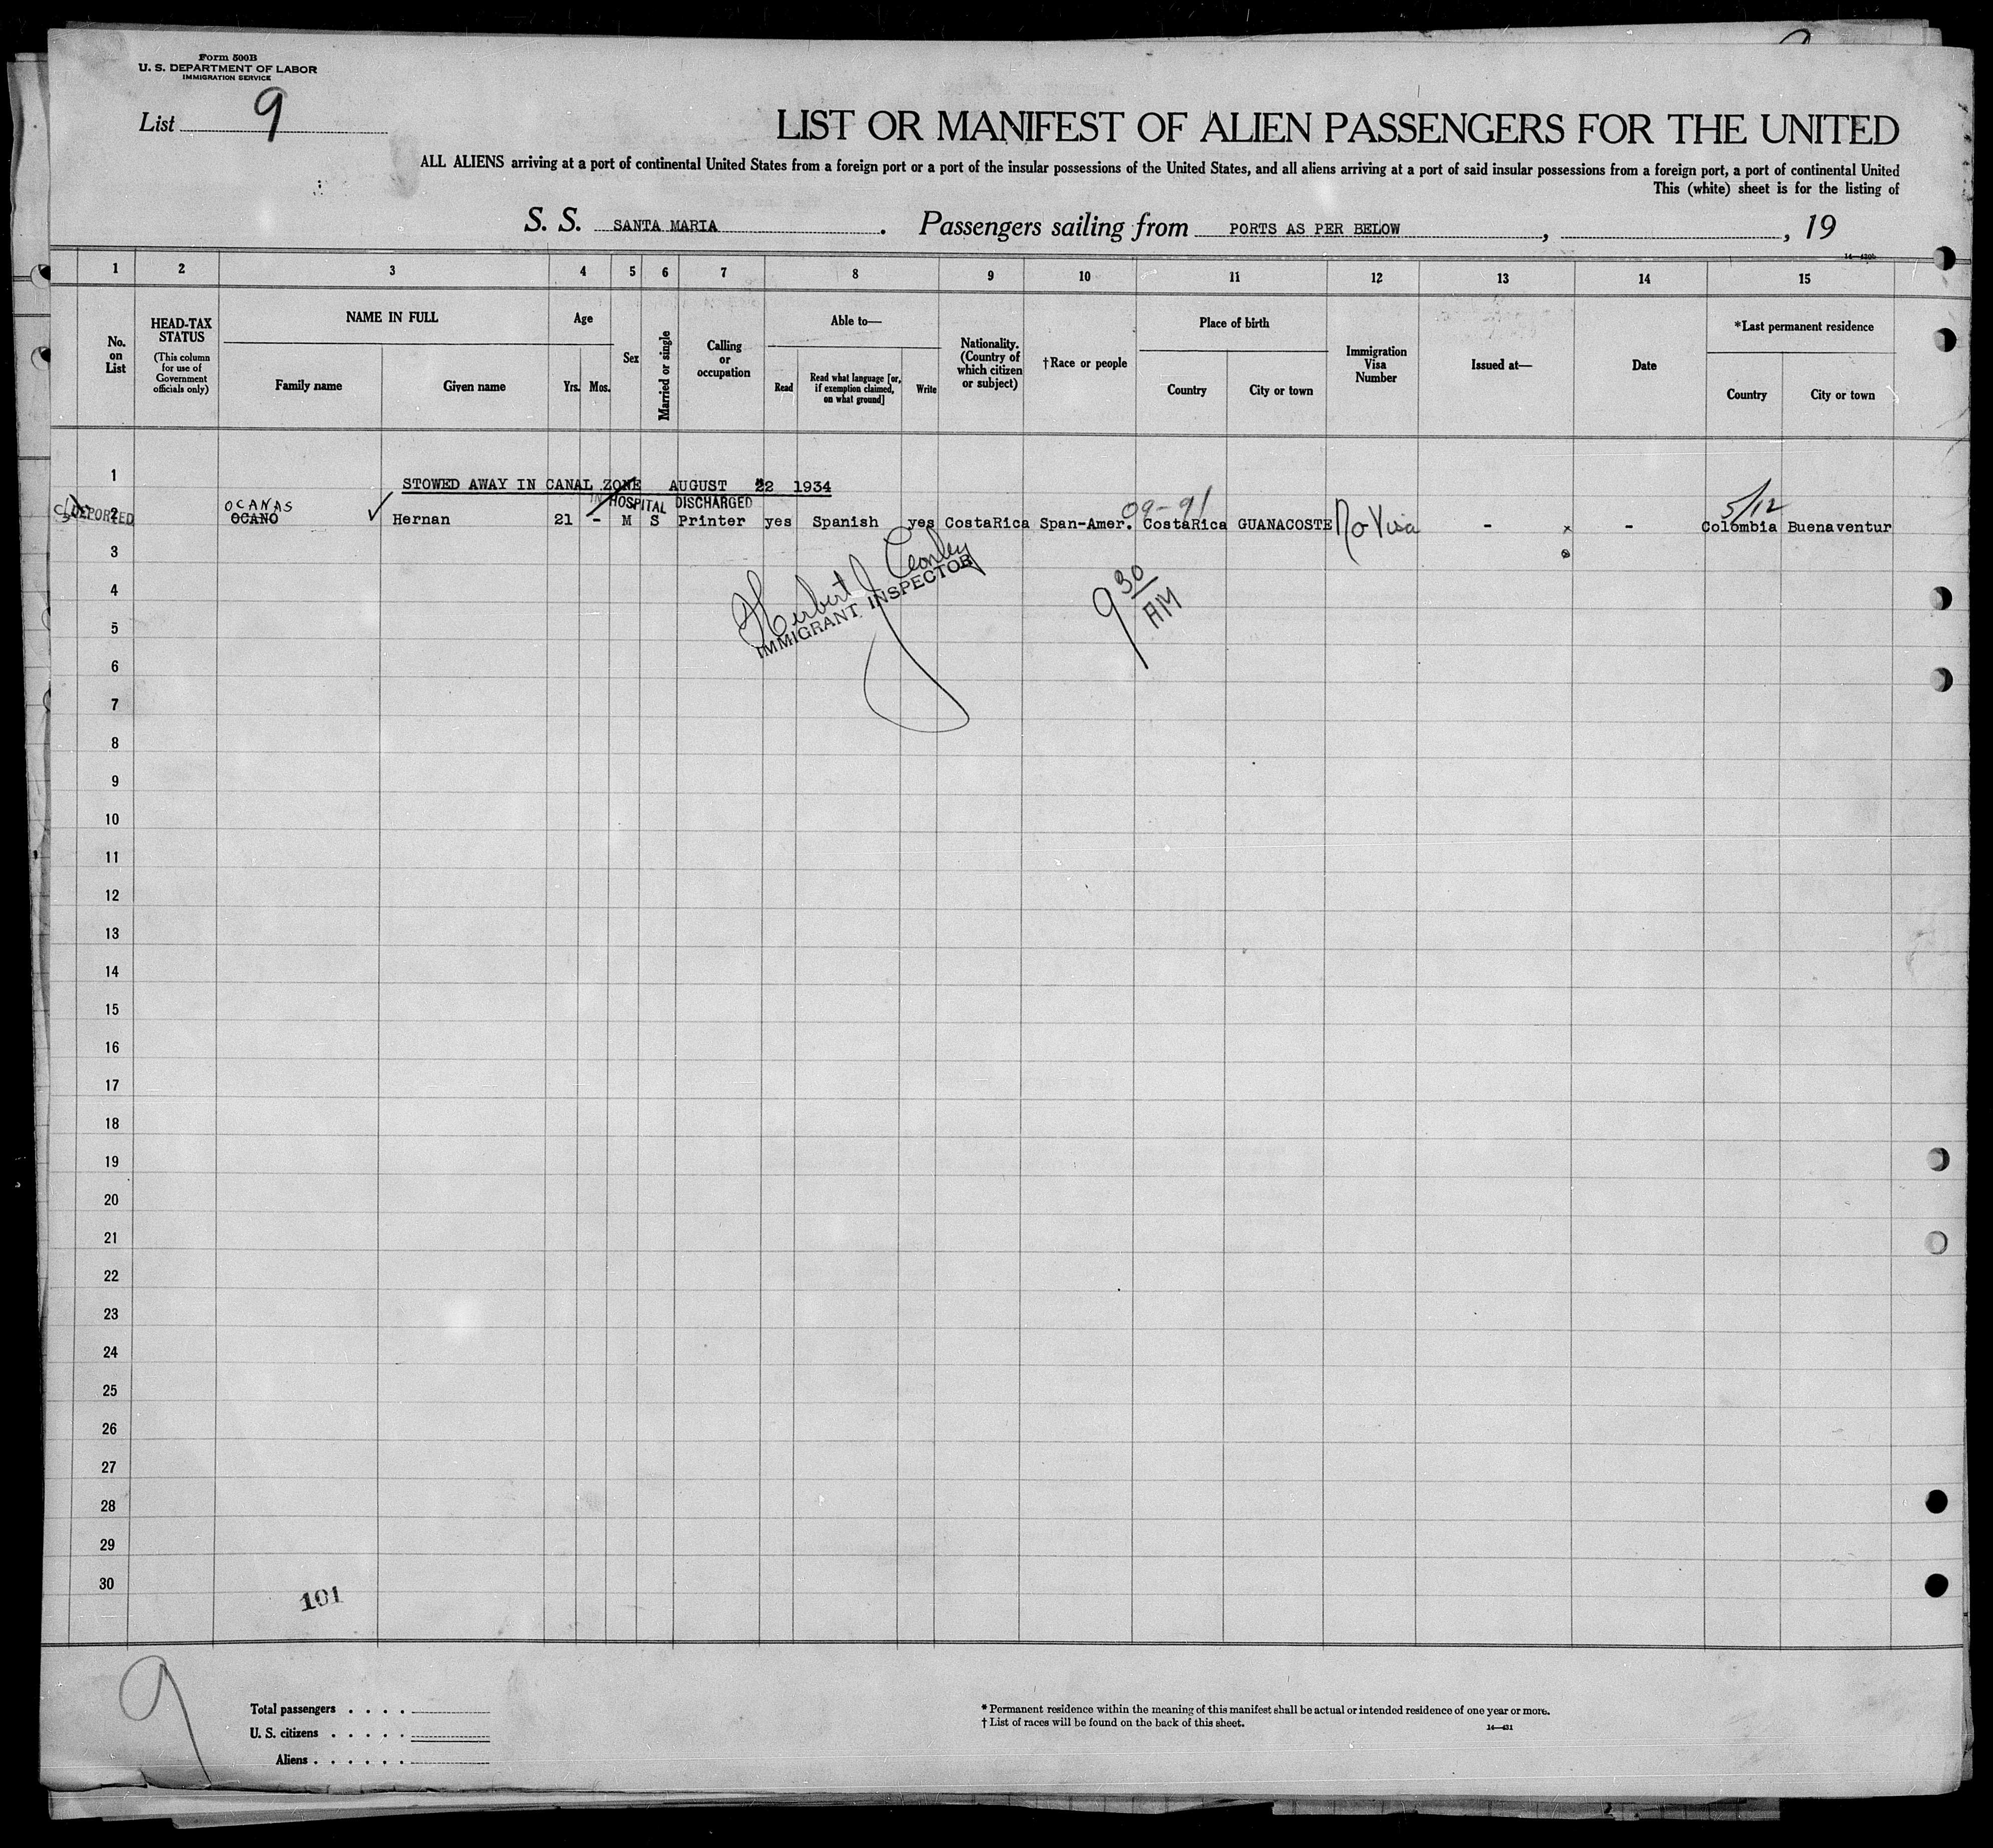 Form 500B
U. S. DEPARTMENT OF LABOR
IMMIGRATION SERVICE
List 9
LIST OR MANIFEST OF ALIEN PASSENGERS FOR THE UNITED
ALL ALIENS arriving at a port of continental United States from a foreign port or a port of the insular possessions of the United States, and all aliens arriving at a port of said insular possessions from a foreign port, a port of continental United
This (white) sheet is for the listing of
S. S. SANTA MARIA. Passengers sailing from PORTS AS PER BELOW, , 19
1 2 3 4 5 6 7 8 9 10 11 12 13 14 15
No. on List
HEAD-TAX STATUS
(This column for use of Government officials only)
NAME IN FULL
Family name
Given name
Age
Yrs. Mos.
Sex
Married or single
Calling or occupation
Able to—
Read
Read what language [or, if exemption claimed, on what ground]
Write
Nationality. (Country of which citizen or subject)
†Race or people
Place of birth
Country
City or town
Immigration Visa Number
Issued at—
Date
*Last permanent residence
Country
City or town
1
STOWED AWAY IN CANAL ZONE AUGUST 22 1934
IN HOSPITAL DISCHARGED
OCANAS
09-91
5/12
DEPORTED 2 OCANO ✓ Hernan 21 - M S Printer yes Spanish yes CostaRica Span-Amer. CostaRica GUANACOSTE No Visa - x - Colombia Buenaventur
3
4
5
6
7
8
9
10
11
12
13
14
15
16
17
18
19
20
21
22
23
24
25
26
27
28
29
30
Herbert J
IMMIGRANT INSPECTOR
9 30 AM
101
9
Total passengers . . . .
U. S. citizens . . . . .
Aliens . . . . . .
* Permanent residence within the meaning of this manifest shall be actual or intended residence of one year or more.
† List of races will be found on the back of this sheet.
14—431